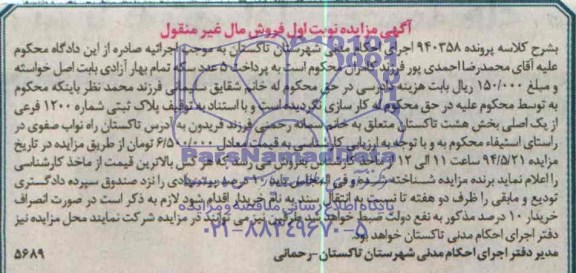 آگهی مزایده نوبت اول فروش مال غیر منقول
بشرح کلاسه پرونده ۹۴۰۳۵۸ اجرای احکام مدنی شهرستان تاکستان به موجب اجرائیه صادره از این دادگاه محکوم
علیه آقای محمدرضا احمدی پور فرزند محکوم است به پرداخت ۵ عدد سکه تمام بهار آزادی بابت اصل خواسته
و مبلغ ۱۵۰/۰۰۰ ریال بابت هزینه دادرسی در حق محکوم له خانم شقایق سلیمانی فرزند محمد نظر باینکه محکوم
به توسط محکوم علیه در حق محکوم له کار سازی نگردیده است و با استناد به توقیف پلاک ثبتی شماره ۱۲۰۰ فرعی
از یک اصلی بخش هشت تاکستان متعلق به خانم رحمتی فرزند فریدون به آدرس تاکستان راه نواب صفوی در
راستای استیفاء محکوم به و با توجه به ارزیابی کارشناسی به قیمت معادل تومان از طریق مزایده در تاریخ
مزایده ۹۴/۵/۲۱ ساعت ۱۱ الی ۱۲ بفروش می کس بالاترین قیمت از ماخذ کارشناسی
را اعلام نماید برنده مزایده شناخته شده و فی المجلس باید ۱۰ درصد پیشنهادی را نزد صندوق سپرده دادگستری
تودیع و مابقی را ظرف دو هفته تا نسبت به انتقال سند به نام خریدار اقدام شود لازم به ذکر است در صورت انصراف
خریدار ۱۰ درصد مذکور به نفع دولت ضبط خواهد شد طرفین نیز می توانند در مزایده شرکت نمایند محل مزایده نیز
دفتر اجرای احکام مدنی تاکستان خواهد بود.
مدیر دفتر اجرای احکام مدنی شهرستان تاکستان - رحمانی
۵۶۸۹
ParsNamadData
پایگاه اطلاع رسانی مناقصه و مزایده
۰۲۱-۸۸۳۴۹۶۷۰-۵